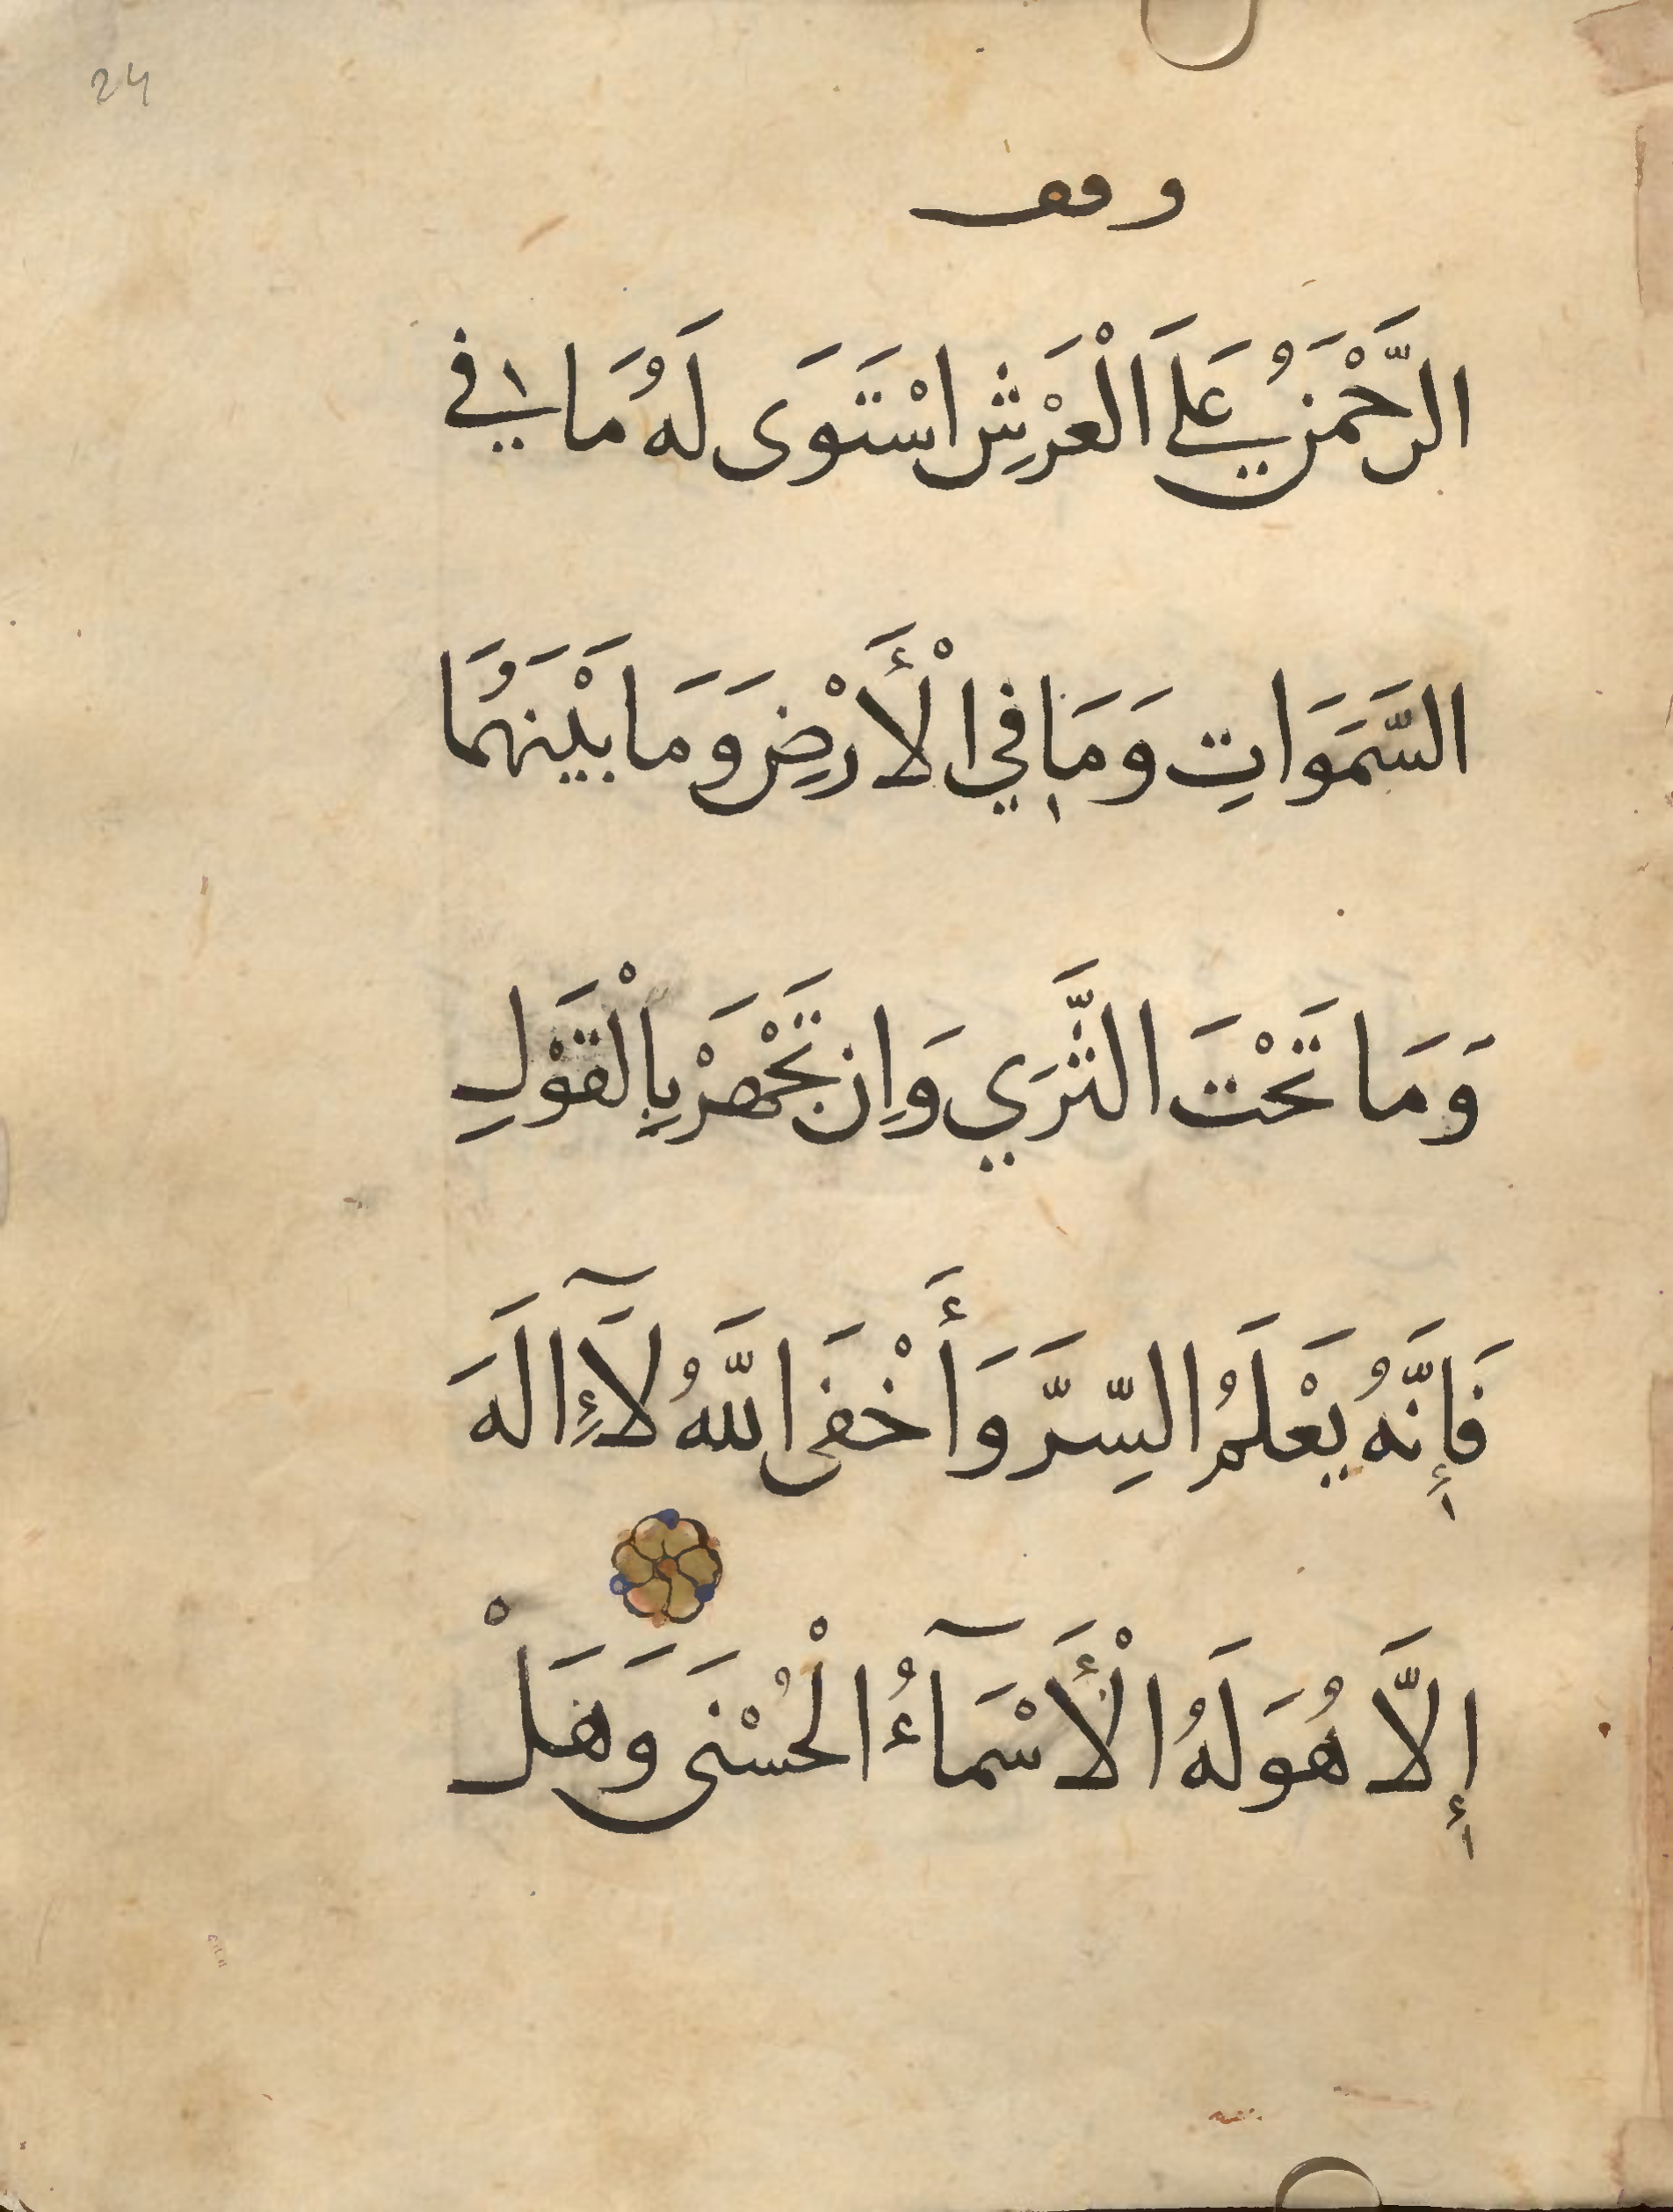 24
وقف
الرَّحْمَنُ عَلَى الْعَرْشِ اسْتَوَى لَهُ مَا فِي
السَّمَوَاتِ وَمَا فِي الْأَرْضِ وَمَا بَيْنَهُمَا
وَمَا تَحْتَ الثَّرَي وَاِن تَجْهَرْ بِالْقَوْلِ
فَإِنَّهُ يَعْلَمُ السِّرَّ وَأَخْفَى اللَّهُ لَآ إِلَهَ
إِلَّا هُوَ لَهُ الْأَسْمَآءُ الْحُسْنَى وَهَلْ